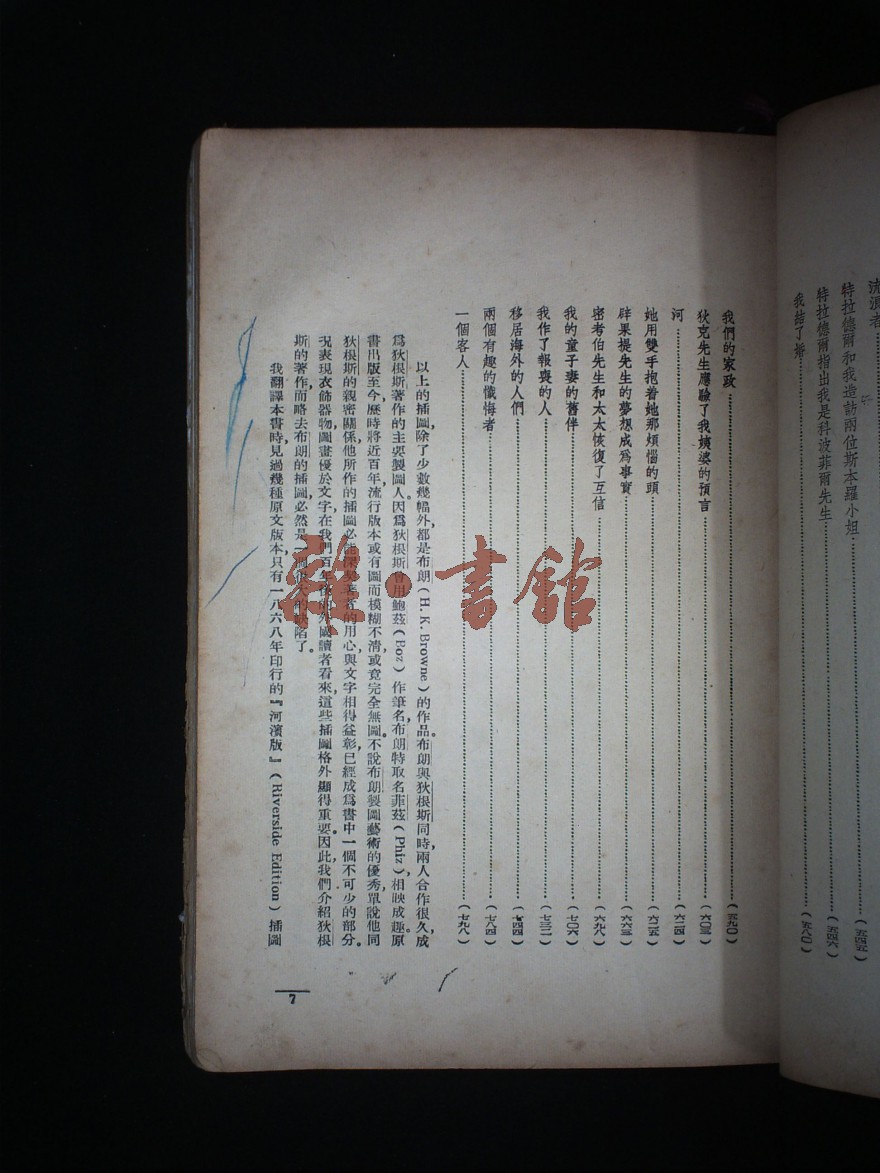 流浪者
特拉德爾和我造訪兩位斯本羅小姐……(五四五)
特拉德爾指出我是科波菲爾先生……(五四六)
我結了婚……(五八〇)
我們的家政……(五九〇)
狄克先生應驗了我姨婆的預言……(六〇三)
河……(六二四)
她用雙手抱着她那煩惱的頭……(六二五)
辟果提先生的夢想成爲事實……(六六三)
密考伯先生和太太恢復了互信……(六九八)
我的童子妻的舊伴……(七〇六)
我作了報喪的人……(七三二)
移居海外的人們……(七四四)
兩個有趣的懺悔者……(七八四)
一個客人……(七九八)
以上的插圖除了少數幾幅外,都是布朗(H. K. Browne)的作品。布朗與狄根斯同時,兩人合作很久,成
爲狄根斯著作的主要製圖人。因爲狄根斯曾用鮑茲(Boz)作筆名,布朗特取名菲茲(Phiz),相映成趣。原
書出版至今,歷時將近百年,流行版本或有圖而模糊不清,或竟完全無圖。不說布朗製圖藝術的優秀,單說他同
狄根斯的親密關係,他所作的插圖必能深契著者的用心,與文字相得益彰,已經成爲書中一個不可少的部分。
況表現衣飾器物,圖畫優於文字,在我們百年後的外國讀者看來,這些插圖格外顯得重要。因此,我們介紹狄根
斯的著作,而略去布朗的插圖,必然是一個很大的缺陷了。
我翻譯本書時,見過幾種原文版本,只有一八六八年印行的『河濱版』(Riverside Edition)插圖
7
雜·書館